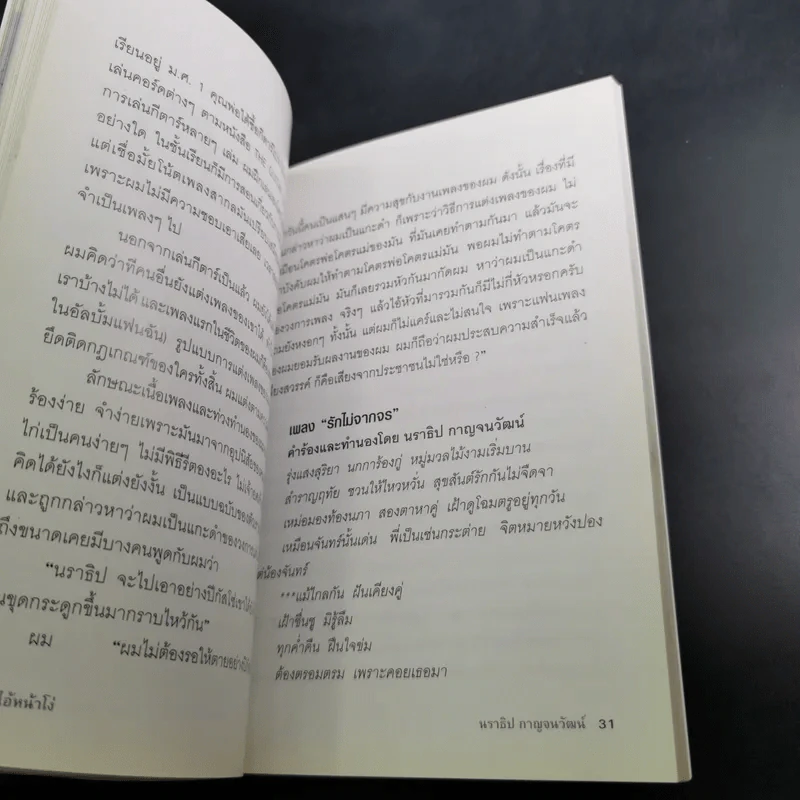 เรียนอยู่ ม.ศ. 1 คุณพ่อได้ซื้อ
เล่นคอร์ดต่างๆ ตามหนังสือ THE
การเล่นกีตาร์หลายๆ เล่ม ผม
อย่างใด ในชั้นเรียนก็มีการสอนเกี่ยวกับ
แต่เชื่อมั้ยโน้ตเพลงสากลมัน
เพราะผมไม่มีความชอบเอาเสียเลย
จำเป็นเพลงๆ ไป
นอกจากเล่นกีตาร์เป็นแล้ว ผมยัง
ผมคิดว่าทีคนอื่นยังแต่งเพลงของเขาได้
เราบ้างไม่ได้ และเพลงแรกในชีวิตของผม
ในอัลบั้มแฟนฉัน) รูปแบบการแต่งเพลงของ
ยึดติดกฎเกณฑ์ของใครทั้งสิ้น ผมแต่งตาม
ลักษณะเนื้อเพลงและท่วงทำนองของ
ร้องง่าย จำง่ายเพราะมันมาจากอุปนิสัยของ
ไก่เป็นคนง่ายๆ ไม่มีพิธีรีตองอะไร ไม่
คิดได้ยังไงก็แต่งยังงั้น เป็นแบบฉบับของ
และถูกกล่าวหาว่าผมเป็นแกะดำของวงการ
ถึงขนาดเคยมีบางคนพูดกับผมว่า
“นราธิป จะไปเอาอย่างปีกัสโซ่เขาได้
นขุดกระดูกขึ้นมากราบไหว้กัน”
ผม “ผมไม่ต้องรอให้ตายอย่าง
ไอ้หน้าโง่
วันนี้คนเป็นแสนๆ มีความสุขกับงานเพลงของผม ดังนั้น เรื่องที่มี
กล่าวหาว่าผมเป็นแกะดำ ก็เพราะว่าวิธีการแต่งเพลงของผม ไม่
เหมือนโคตรพ่อโคตรแม่ของมัน ที่มันเคยทำตามกันมา แล้วมันจะ
บังคับผมให้ทำตามโคตรพ่อโคตรแม่มัน พอผมไม่ทำตามโคตร
โคตรแม่มัน มันก็เลยรวมหัวกันมากัดผม หาว่าผมเป็นแกะดำ
ของวงการเพลง จริงๆ แล้วไอ้หัวที่มารวมกันก็มีไม่กี่หัวหรอกครับ
มยังหงอกๆ ทั้งนั้น แต่ผมก็ไม่แคร์และไม่สนใจ เพราะแฟนเพลง
องผมยอมรับผลงานของผม ผมก็ถือว่าผมประสบความสำเร็จแล้ว
สียงสวรรค์ ก็คือเสียงจากประชาชนไม่ใช่หรือ ?”
เพลง “รักไม่จากจร”
คำร้องและทำนองโดย นราธิป กาญจนวัฒน์
รุ่งแสงสุริยา นกการ้องกู่ หมู่มวลไม้งามเริ่มบาน
สำราญฤทัย ชวนให้ไหวหวั่น สุขสันต์รักกันไม่จืดจา
เหม่อมองท้องนภา สองตาหาคู่ เฝ้าดูโฉมตรูอยู่ทุกวัน
เหมือนจันทร์นั้นเด่น พี่เป็นเช่นกระต่าย จิตหมายหวังปอง
แต่น้องจันทร์
***แม้ไกลกัน ฝันเคียงคู่
เฝ้าชื่นชู มิรู้ลืม
ทุกค่ำคืน ฝืนใจข่ม
ต้องตรอมตรม เพราะคอยเธอมา
นราธิป กาญจนวัฒน์ 31